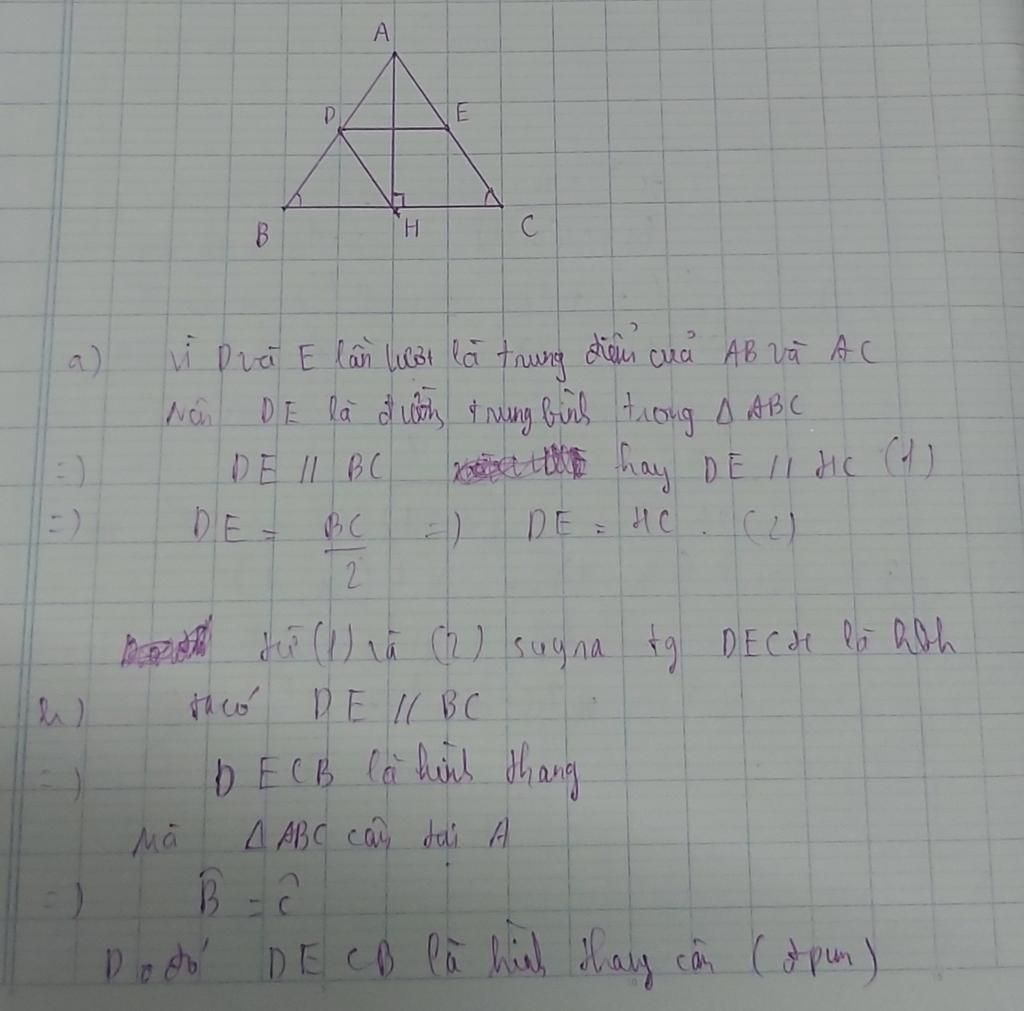 A
D E
B H C
a) Vì D và E lần lượt là trung điểm của AB và AC
Nên DE là đường trung bình trong Δ ABC
=) DE // BC hay DE // HC (1)
=) DE = BC/2 =) DE = HC . (2)
từ (1) và (2) suy ra tg DECH là hbh
b) ta có DE // BC
=) DECB là hình thang
Mà Δ ABC cân tại A
=) B̂ = Ĉ
Do đó DECB là hình thang cân (đpcm)